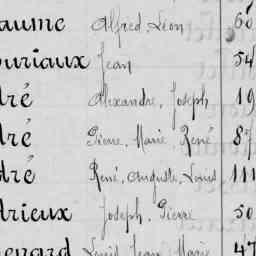 aume Alfred, Léon 60
uriaux Jean 54
dré Alexandre, Joseph 19
dré Pierre, Marie, René 87
dré René, Auguste, Louis 111
drieux Joseph, Pierre 50
enard Louis, Jean, Marie 47